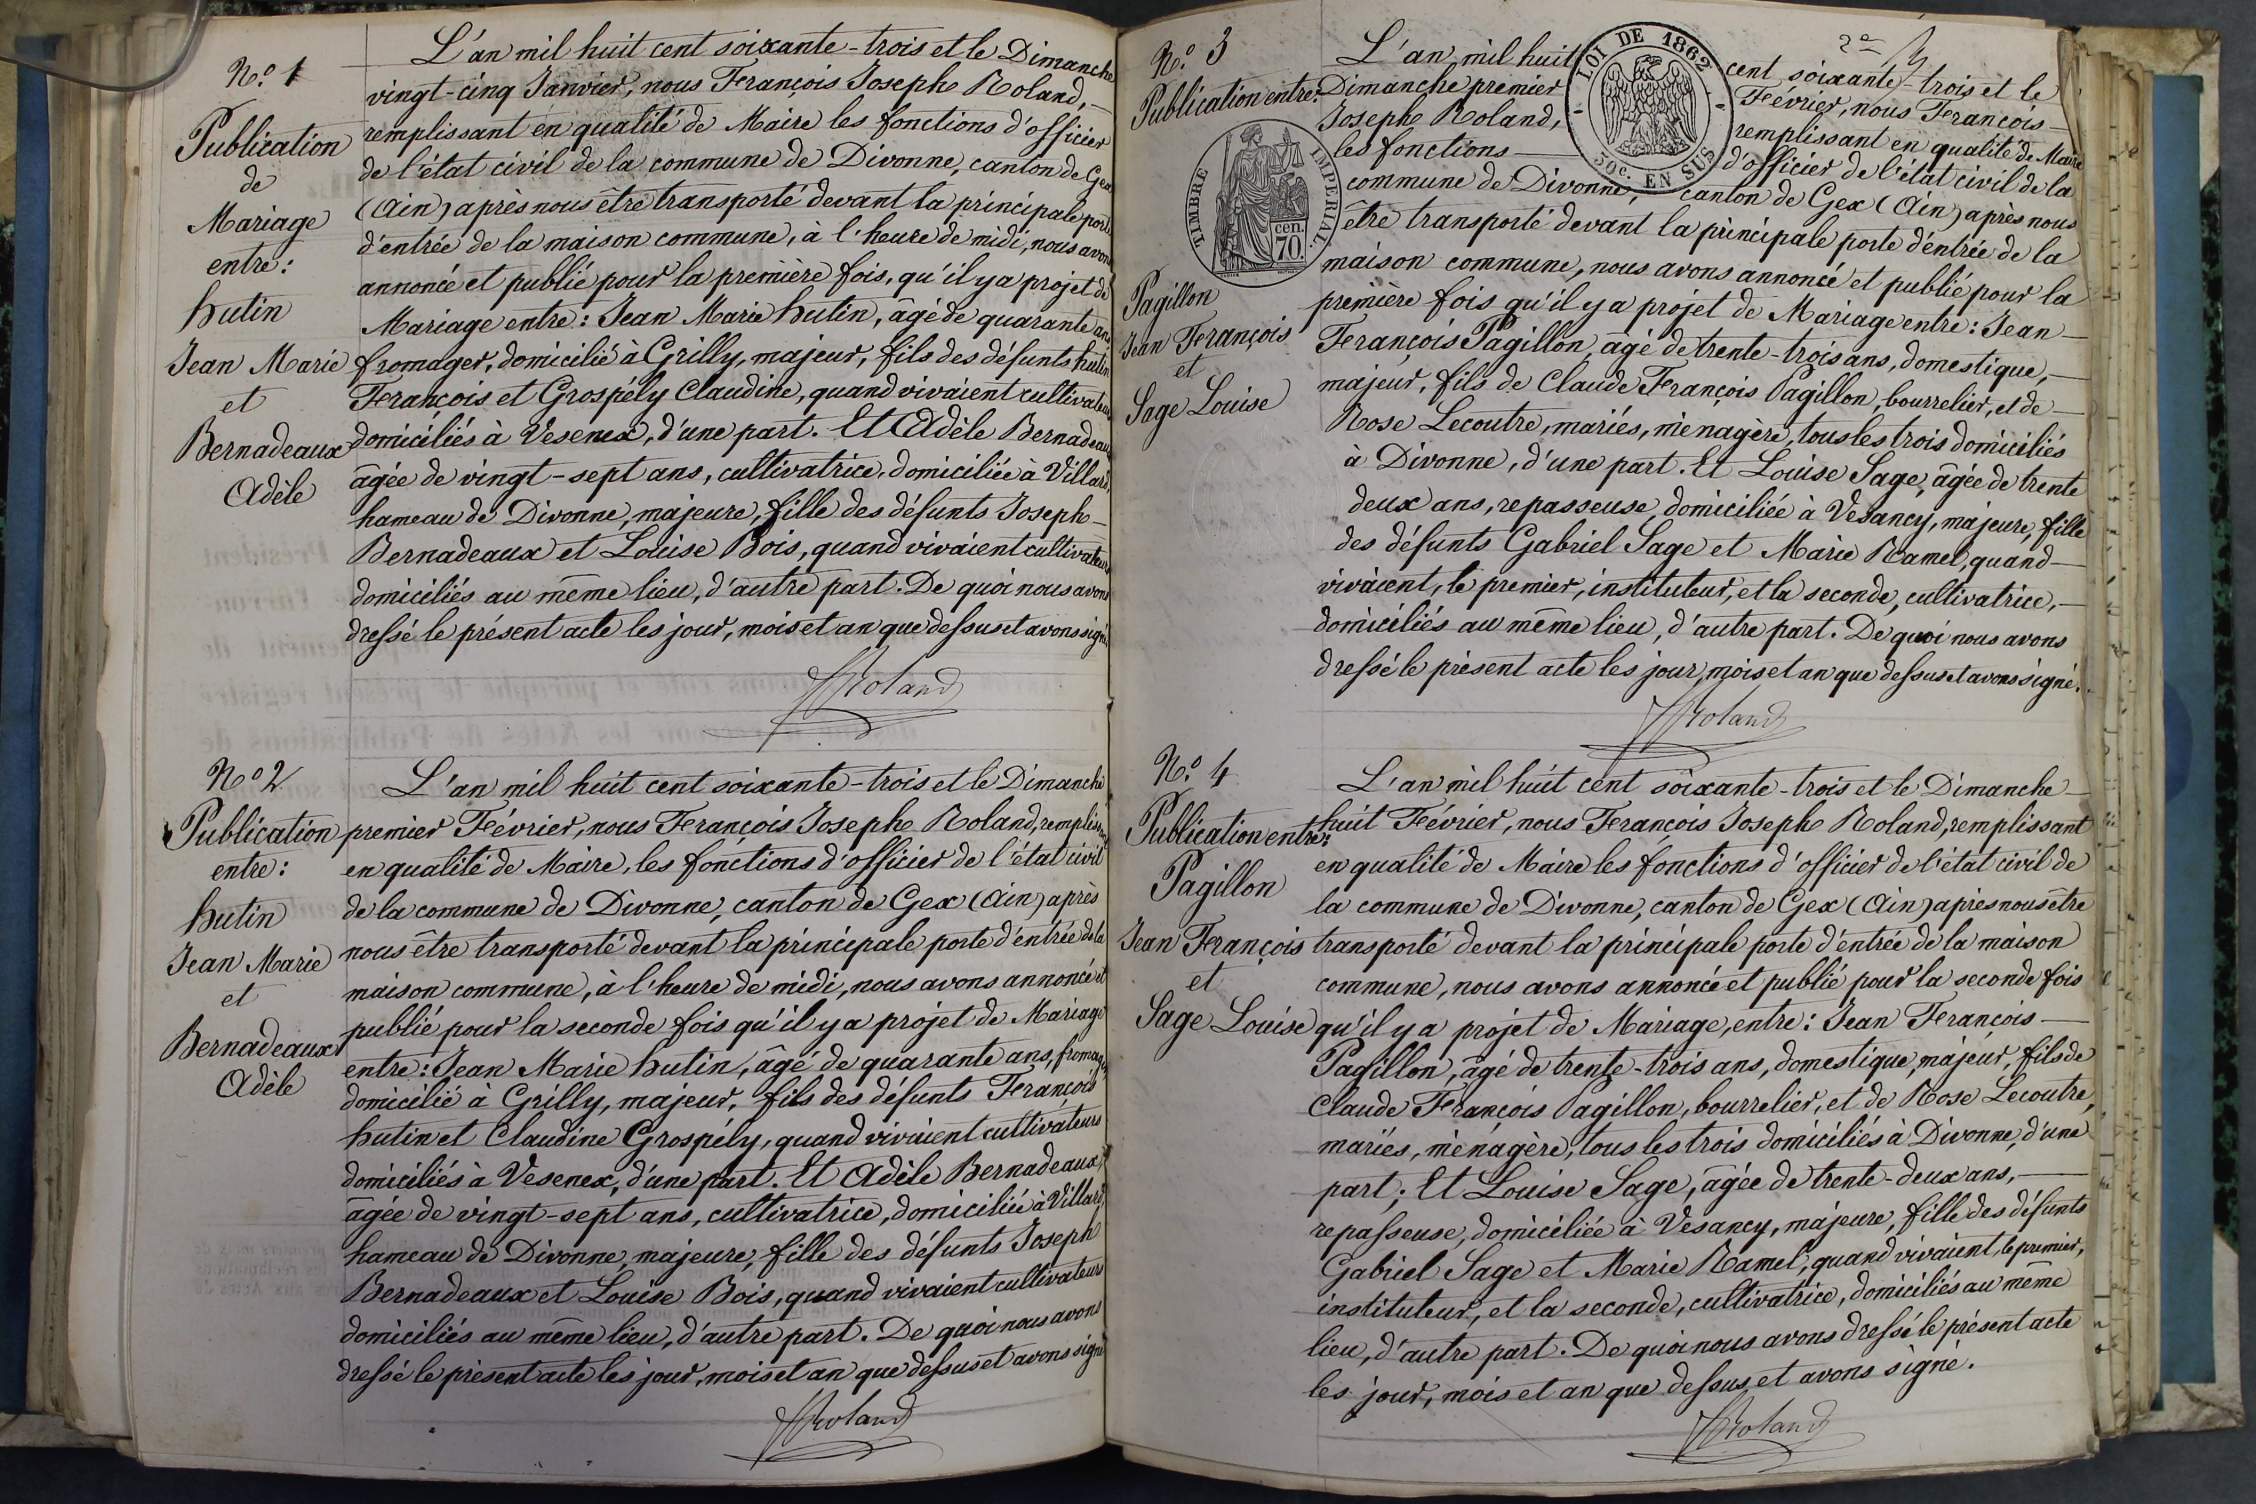 N.o 1
Publication
de
Mariage
entre:
hutin
Jean Marie
et
Bernadeaux
Adèle
L'an mil huit cent soixante-trois et le Dimanche
vingt-cinq Janvier, nous François Joseph Roland,
remplissant en qualité de Maire les fonctions d'officier
de l'état civil de la commune de Divonne, canton de Gex
(Ain) après nous être transporté devant la principale porte
d'entrée de la maison commune, à l'heure de midi, nous avons
annoncé et publié pour la première fois, qu'il y a projet de
Mariage entre: Jean Marie hutin, âgé de quarante ans
fromager, domicilié à Grilly, majeur, fils des défunts hutin
François et Grospély Claudine, quand vivaient cultivateurs
domiciliés à Vesenex, d'une part. Et Adèle Bernadeaux
âgée de vingt-sept ans, cultivatrice, domiciliée à Villard,
hameau de Divonne, majeure, fille des défunts Joseph
Bernadeaux et Louise Bois, quand vivaient cultivateurs
domiciliés au même lieu, d'autre part. De quoi nous avons
dressé le présent acte les jour, mois et an que dessus et avons signé.
Roland
N.o 2
Publication
entre:
hutin
Jean Marie
et
Bernadeaux
Adèle
L'an mil huit cent soixante-trois et le Dimanche
premier Février, nous François Joseph Roland, remplissant
en qualité de Maire, les fonctions d'officier de l'état civil
de la commune de Divonne, canton de Gex (Ain) après
nous être transporté devant la principale porte d'entrée de la
maison commune, à l'heure de midi, nous avons annoncé et
publié pour la seconde fois qu'il y a projet de Mariage
entre: Jean Marie hutin, âgé de quarante ans, fromager
domicilié à Grilly, majeur, fils des défunts François
hutin et Claudine Grospély, quand vivaient cultivateurs
domiciliés à Vesenex, d'une part. Et Adèle Bernadeaux,
âgée de vingt-sept ans, cultivatrice, domiciliée à Villard
hameau de Divonne, majeure, fille des défunts Joseph
Bernadeaux et Louise Bois, quand vivaient cultivateurs
domiciliés au même lieu, d'autre part. De quoi nous avons
dressé le présent acte les jour, mois et an que dessus et avons signé
Roland
2e
N.o 3
Publication entre:
Pagillon
Jean François
et
Sage Louise
LOI DE 1862
50c. EN SUS
TIMBRE IMPERIAL.
cen.
70.
L'an mil huit cent soixante-trois et le
Dimanche premier Février, nous François
Joseph Roland, remplissant en qualité de Maire
les fonctions d'officier de l'état civil de la
commune de Divonne, canton de Gex (Ain) après nous
être transporté devant la principale porte d'entrée de la
maison commune, nous avons annoncé et publié pour la
première fois qu'il y a projet de Mariage entre: Jean
François Pagillon, âgé de trente-trois ans, domestique,
majeur, fils de Claude François Pagillon, bourrelier, et de
Rose Lecoutre, mariés, ménagère, tous les trois domiciliés
à Divonne, d'une part. Et Louise Sage, âgée de trente
deux ans, repasseuse, domiciliée à Vesancy, majeure, fille
des défunts Gabriel Sage et Marie Ramel, quand
vivaient, le premier, instituteur, et la seconde, cultivatrice,
domiciliés au même lieu, d'autre part. De quoi nous avons
dressé le présent acte les jour, mois et an que dessus et avons signé.
Roland
N.o 4
Publication entre:
Pagillon
Jean François
et
Sage Louise
L'an mil huit cent soixante-trois et le Dimanche
huit Février, nous François Joseph Roland, remplissant
en qualité de Maire les fonctions d'officier de l'état civil de
la commune de Divonne, canton de Gex (Ain) après nous être
transporté devant la principale porte d'entrée de la maison
commune, nous avons annoncé et publié pour la seconde fois
qu'il y a projet de Mariage, entre: Jean François
Pagillon, âgé de trente-trois ans, domestique, majeur, fils de
Claude François Pagillon, bourrelier, et de Rose Lecoutre,
mariés, ménagère, tous les trois domiciliés à Divonne, d'une
part; Et Louise Sage, âgée de trente-deux ans,
repasseuse, domiciliée à Vesancy, majeure, fille des défunts
Gabriel Sage et Marie Ramel, quand vivaient, le premier,
instituteur, et la seconde, cultivatrice, domiciliés au même
lieu, d'autre part. De quoi nous avons dressé le présent acte
les jour, mois et an que dessus et avons signé.
Roland